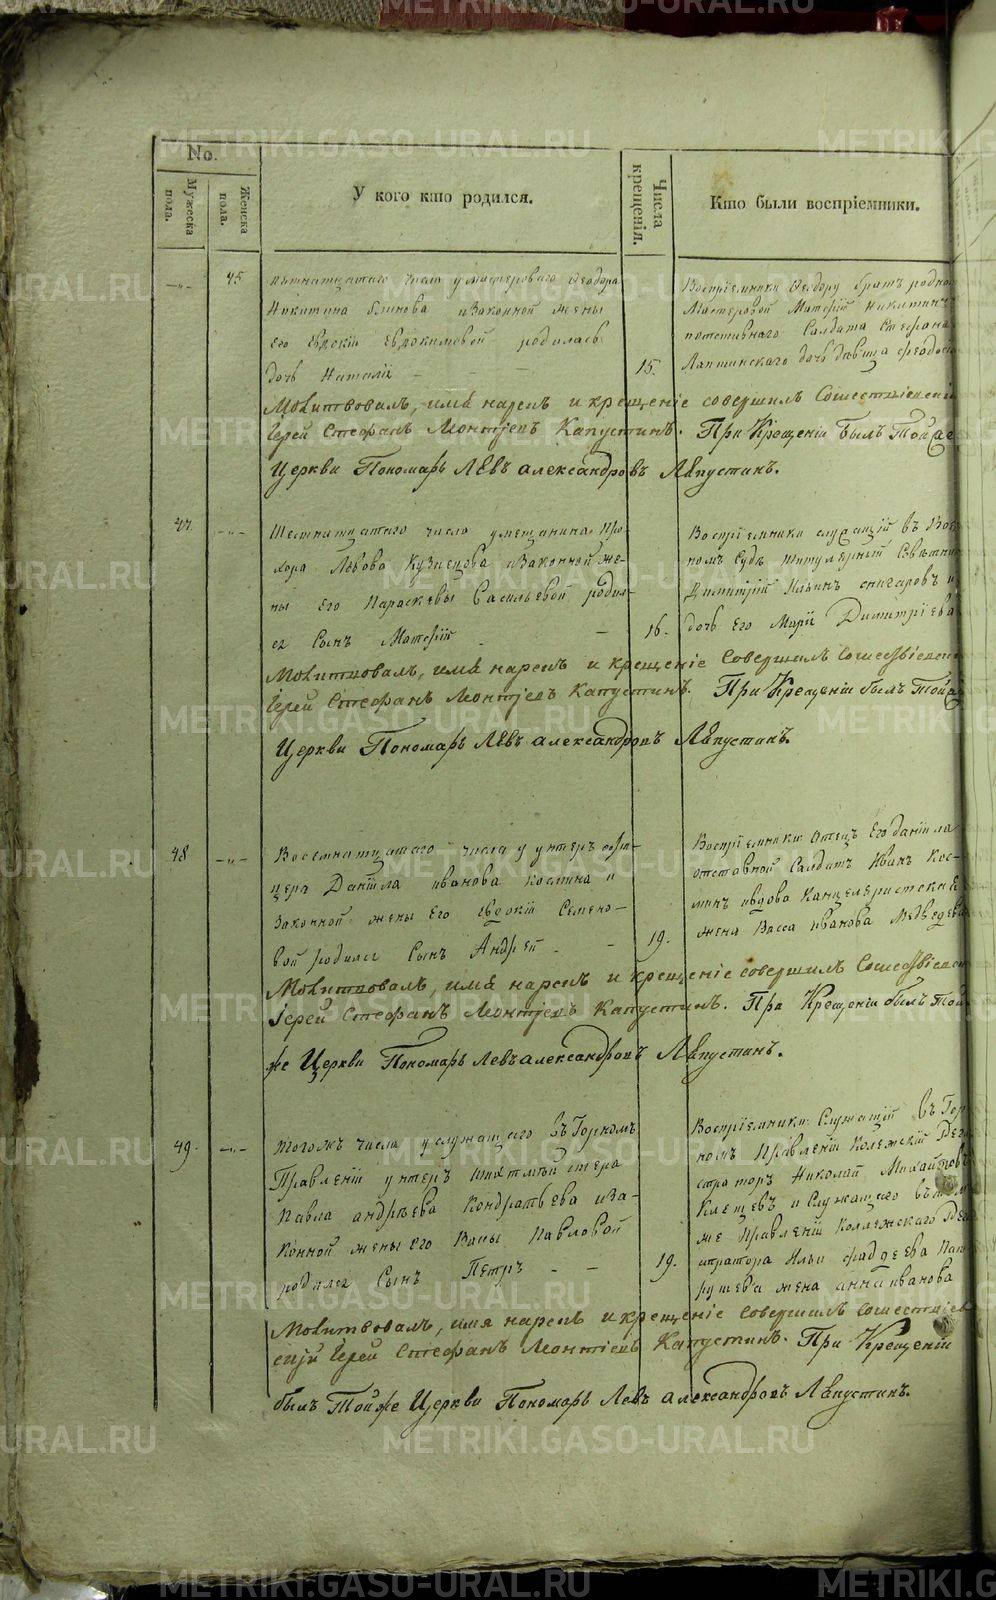 No.
Мужеска пола.
Женска пола.
У кого кто родился.
Числа крещенія.
Кто были воспріемники.
45
Пятнатцатаго числа у мастероваго Феодора
Никитина Блинова и законной жены
его Евдокіи Евдокимовой родилась
дочь Наталія
15.
Воспріемники Феодору братъ родной
Мастеровой Матфій Никитинъ
отставнаго Солдата Стефана
Лаптинскаго дочь девица Феодосія
Молитвовалъ, имя нарекъ и крещеніе совершилъ Сошествіевскій
Іерей Стефанъ Леонтіевъ Капустинъ. При Крещеніи былъ Тойже
Церкви Пономарь Левъ Александровъ Ляпустинъ.
47
Шестнатцатаго числа у мещанина Про-
хора Львова Кузнецова и законной же-
ны его Параскевы Васильевой родил-
ся Сынъ Матфій
16.
Воспріемники служащій въ Воен
номъ Суде титулярный Советник
Димитрій Ильинъ и
дочь его Марія Димитріева
Молитвовалъ, имя нарекъ и крещеніе Совершилъ Сошествіевскій
Іерей Стефанъ Леонтіевъ Капустинъ. При Крещеніи былъ Тойже
Церкви Пономарь Левъ Александровъ Ляпустинъ.
48
Восемнатцатаго числа у унтеръ офи-
цера Даніила Иванова Космина и
законной жены его Евдокіи Семено-
вой родился Сынъ Андрей
19.
Воспріемники: Отецъ его Даніила
отставной Солдатъ Иванъ Кос-
минъ и вдова Канцеляристска
жена Васса Иванова Медведева
Молитвовалъ, имя нарекъ и крещеніе совершилъ Сошествіевскій
Іерей Стефанъ Леонтіевъ Капустинъ. При Крещеніи былъ Той
же Церкви Пономарь Левъ Александровъ Ляпустинъ.
49.
Тогожъ числа у служащаго въ Горномъ
Правленіи унтеръ шихтмейстера
Павла Андреева Кондратьева и за-
конной жены его Павловой
родился Сынъ Петръ
19.
Воспріемники: Служащій въ Гор
номъ Правленіи Колежскій Реги
страторъ Николай Михайловъ
Клещевъ и Служащаго въ том
же Правленіи Коллежскаго Реги
стратора Ильи Фаддеева Пап
рушева жена Анна Иванова
Молитвовалъ, имя нарекъ и крещеніе Совершилъ Сошествіев
скій Іерей Стефанъ Леонтіевъ Капустинъ. При Крещеніи
былъ Тойже Церкви Пономарь Левъ Александровъ Ляпустинъ.
METRIKI.GASO-URAL.RU